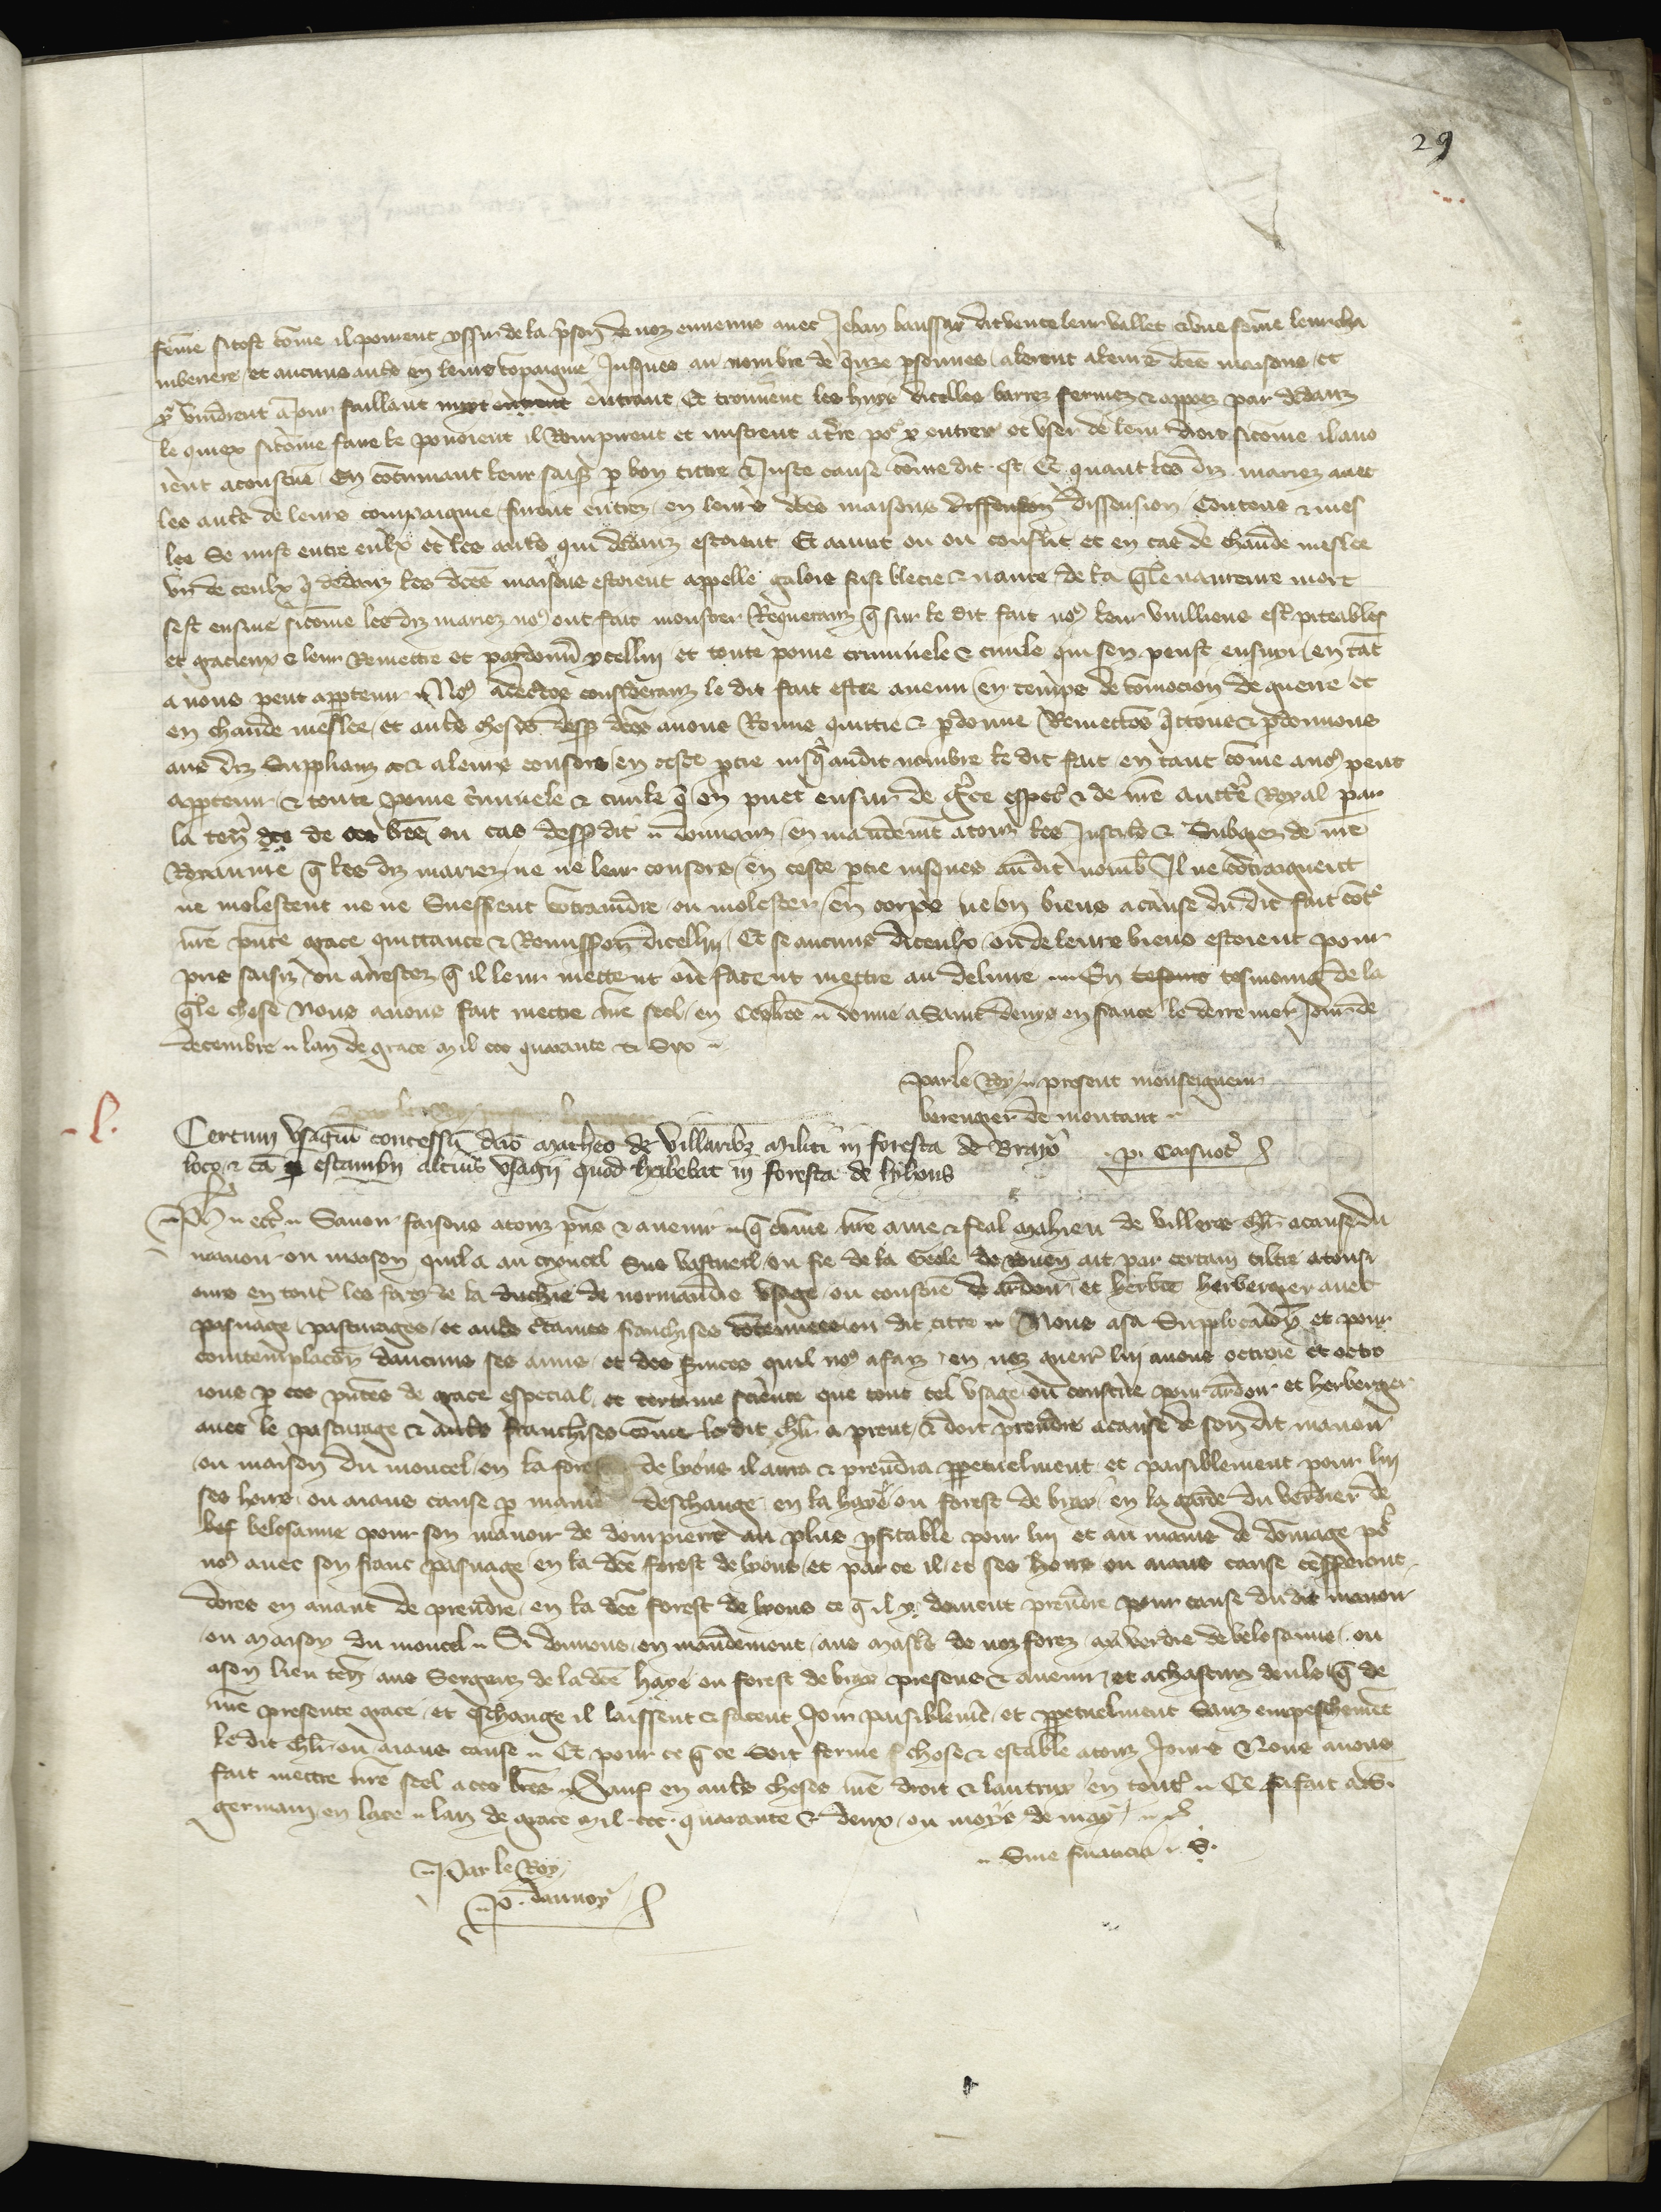 29
feme sitost come il porent yssir de la prison de noz ennemis avec Jehan vallet & une feme leur cha
mberiere et aucuns autres en leurs compaignie Jusques au nombre de onze personnes alerent a leurs dces maisons et
y vindrent a Jour faillant nuyt entrant Et trouverent les huys dicelles barrez fermez & appoiez par dedanz
le quiex sicome faire le povoient il Rompirent et mistrent a terre por y entrer et user de leur droit sicome il avo
ient acoustume En continuant leur saisine p bon titre & Juste cause come dit est Et quant les diz mariez avec
les autres de leurs compaignie furent entrez en leurs dces maisons dissension Contens & mes
lee Se mist entre eulx et les autres qui dedanz estoient Et avint ou on conflit et en cas de chaude meslee
un de ceulx q dedanz les dces maisons estoient appelle galois fust blecie & navre de la qle navreure mort
sest ensuie sicome les diz mariez nos ont fait monstrer Requeranz q sur le dit fait nos leur vuilliens estre piteables
et gracieux & leur Remettre et pardonner ycellui et toute poine criminele & civile qui sen peust ensuyr en tat
a nous peut appartenir Nos adecertes consideranz le dit fait estre avenu en temps de comocion de guerre et
en chaude meslee et autres choses dessus dces avons Remis quittie & pdonne Remettos qittons & pdonnons
aus diz Supplianz & a leurs consors en ceste ptie jusqs audit nombre le dit fait en tant come a nos peut
apptenir & toute poine criminele & civile q en puet ensuir de grce espec & de nre auctte Royal par
la ten de ces lres ou cas dessus dit donnanz en mandemt a touz les Justic & Subgiez de nre
Royaume q les diz mariez ne ne leur consors en ceste ptie jusques audit nomb Il ne contraignent
ne molestent ne ne Sueffrent contraindre ou molester en corps ne en biens a cause du dit fait cotre
nre pnte grace quittance & Remission dicellui Et se aucuns diceulx ou de leurs biens estoient pour
pris saisiz ou arrestez q il leur mettent ou facent mettre au delivre En tesmoing de la
qle chose Nous avons fait mettre nre seel en ces lres donne a Saint denys en france le derrenier Jour de
decembre lan de grace mil ccc quarante & Six
par le Roy present monseigneur
berengier de montaut
l.
Certum usagiu concessu dno Matheo de Villaribz militi in foresta de Brayo
loco & ca escambii alterius usagii quod habebat in foresta de lyhons
Ph ect Savoir faisons a touz pns & avenir q come nre ame & feal Mahieu de Villers chlr a cause du
manoir ou maison quil a au moncel Sus vascueil ou fie de la Geole de rouen ait par certain tiltre a tousi
ours en toutes les forez de la duchie de normandie usage ou coustume de ardoir et herbergier avec
pasnage pasturages et autres ctaines franchises contenues ou dit titre Nous a sa Supplicacion et pour
contemplacion daucuns ses amis et des services quil nos a faiz en noz guerres lui avons octroie et octro
ions p ces pntes de grace especial et certaine science que tout tel usage ou coustume pour ardoir et herberger
avec le pasturage & autres franchises come le dit chlr a prent & doit prendre a cause de son dit manoir
ou maison du moncel en la forest de lyons il aura & prendra ppetuelment et paisiblement pour lui
ses hoirs ou aians cause p maniere deschange en la haye ou forest de bray en la garde du verdier de
belosanne pour son manoir de dompierre au plus pfitable pour lui et au mains de domage por
nos avec son franc pasnage en la dce forest de lyons et par ce il et ses hoirs ou aians cause cesseront
dores en avant de prendre en la dce forest de lyons ce q il y devient prendre pour cause du dit manoir
ou maison du moncel Si donnons en mandement aus mastres de noz forez au verdier de belosanne ou
a son lieu ten aus Sergenz de la dce haye ou forest de bray presens & avenir et a chascun deuls q de
nre presente grace et eschange il laissent & facent Joir paisiblemt et ppetuelment Sanz empeschemt
le dit chlr ou aians cause Et pour ce q ce soit ferme chose & estable a touz Jours Nous avons
fait mettre nre seel a ces lres Sauf en autres choses nre droit & lautruy en toutes Ce fu fait a S.
germain en laye lan de grace mil ccc quarante & deux ou moys de may
Sine financia S.
Par le Roy
P. dannoy